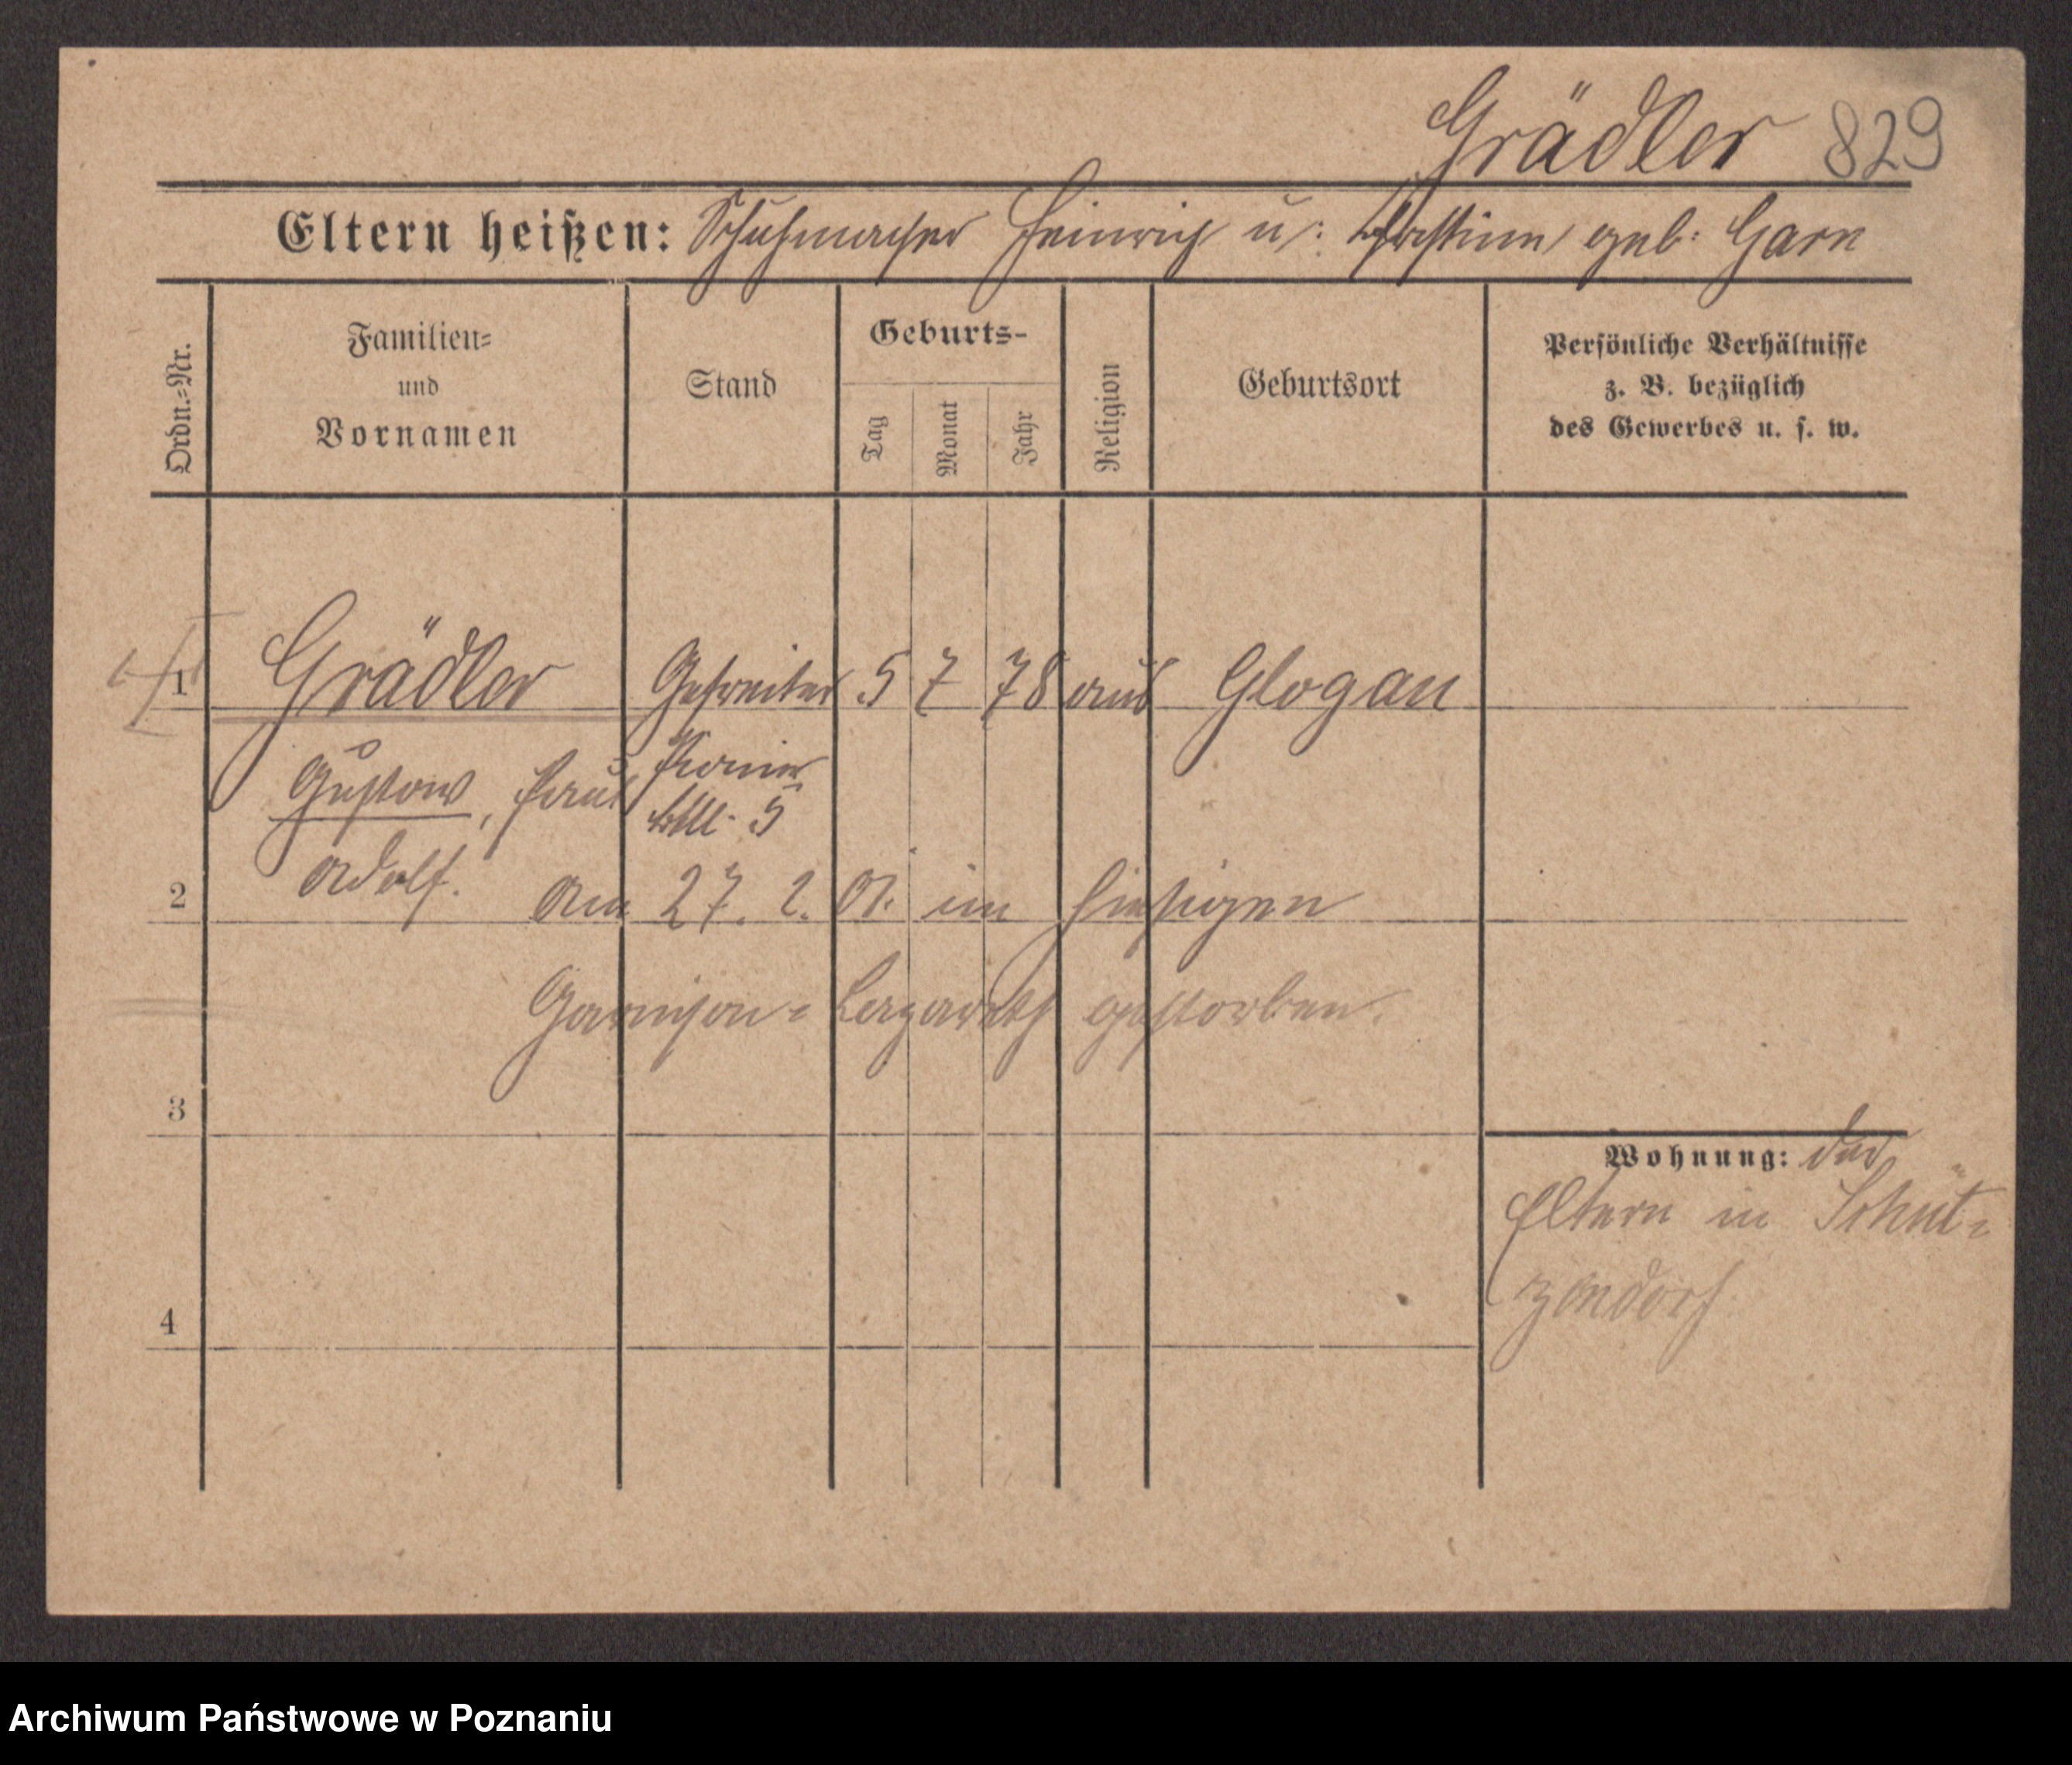 Grädler 829
Eltern heißen: Schuhmacher Heinrich u: Christine geb: Garn
Ordn.-Nr.
Familien- und Vornamen
Stand
Geburts-
Tag
Monat
Jahr
Religion
Geburtsort
Persönliche Verhältnisse
z. B. bezüglich
des Gewerbes u. s. w.
1 Grädler Gefreiter 5 7 78 Glogau
Gustav, Paul Pionier
Adolf. Btll. 5
2 Am 27. 2. 01. im hiesigen
Garnison-Lazareth gestorben.
3
Wohnung: der
Eltern in Schüt-
zendorf
4
Archiwum Państwowe w Poznaniu